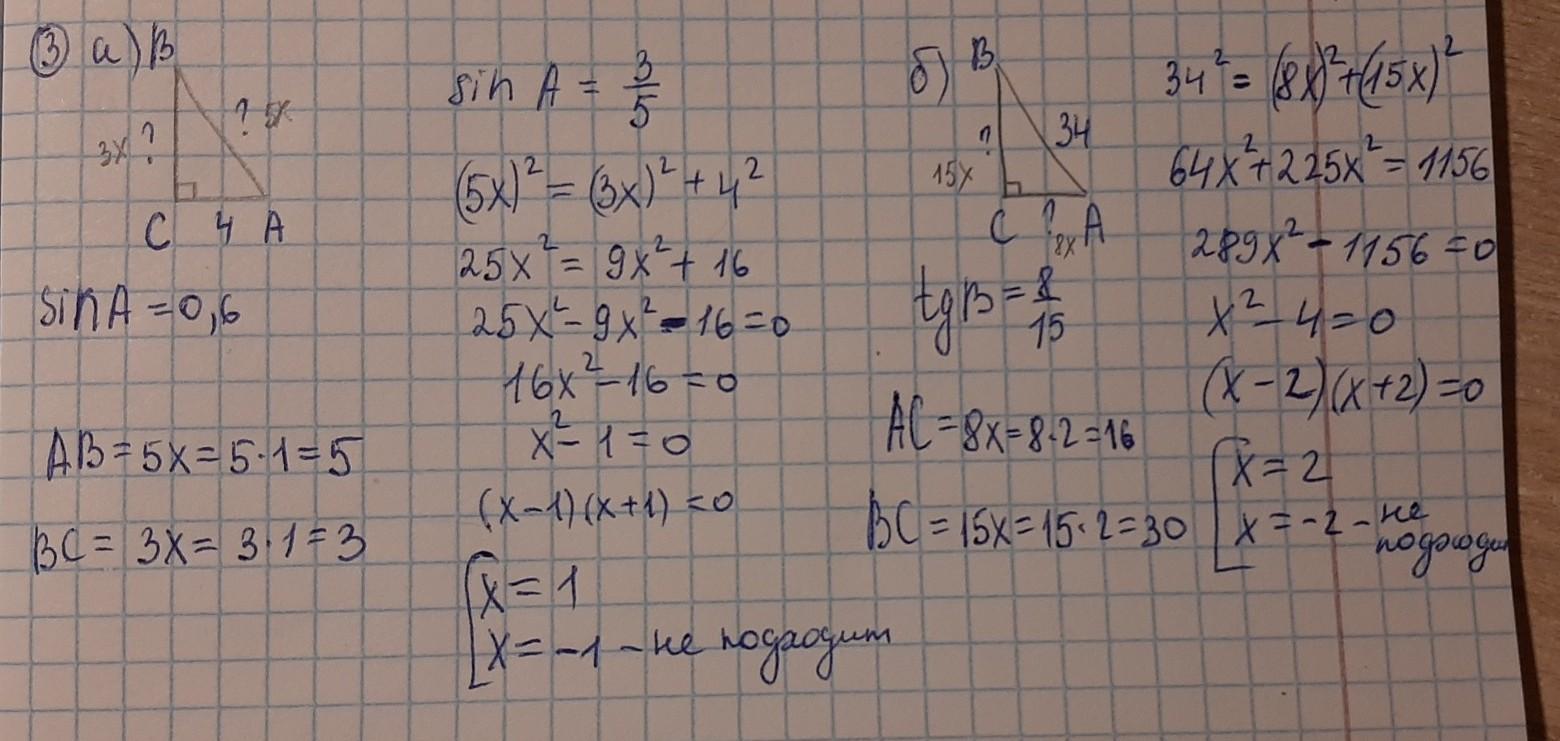 3 а) B
3x ?
? 5x
C 4 A
sin A = 0,6
AB = 5x = 5·1 = 5
BC = 3x = 3·1 = 3
sin A = 3/5
(5x)² = (3x)² + 4²
25x² = 9x² + 16
25x² - 9x² - 16 = 0
16x² - 16 = 0
x² - 1 = 0
(x-1)(x+1) = 0
x = 1
x = -1 - не подходит
б) B
?
34
15x
C ? 8x A
tg B = 8/15
AC = 8x = 8·2 = 16
BC = 15x = 15·2 = 30
34² = (8x)² + (15x)²
64x² + 225x² = 1156
289x² - 1156 = 0
x² - 4 = 0
(x-2)(x+2) = 0
x = 2
x = -2 - не
подходи